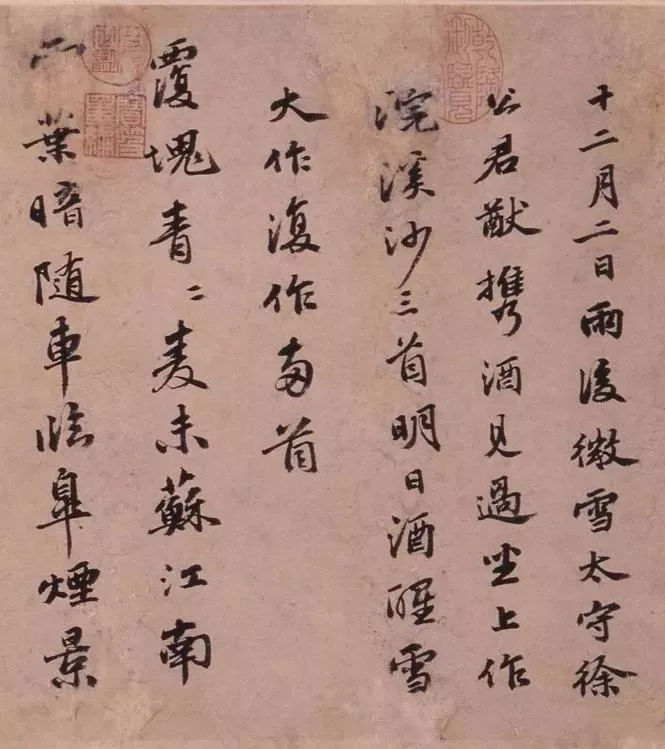 十二月二日雨後微雪太守徐
公君猷携酒見過坐上作
浣溪沙三首明日酒醒雪
大作復作兩首
覆塊青〻麦未蘇江南
葉暗随車臨皐煙景